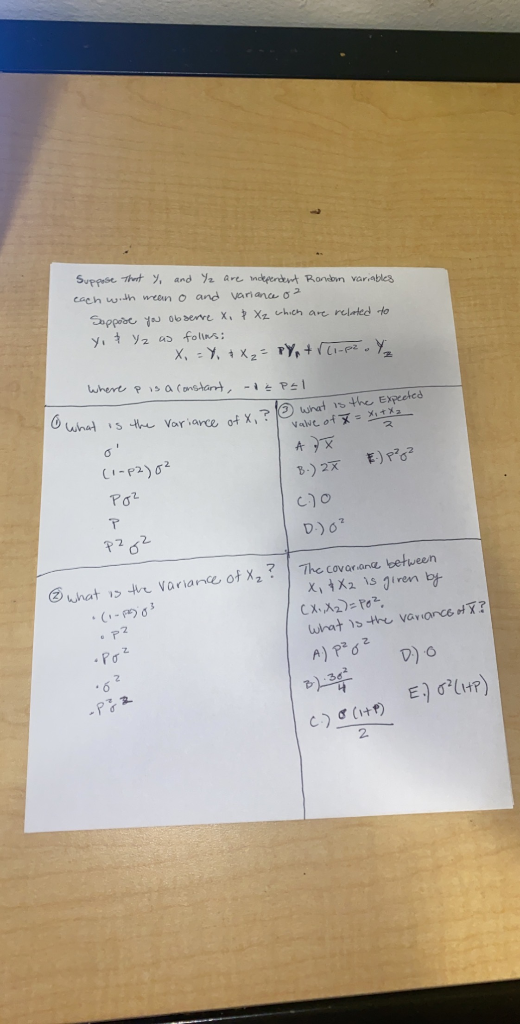 Suppose that Y₁ and Y₂ are independent Random variables
each with mean 0 and variance σ²
Suppose you observe X₁ & X₂ which are related to
Y₁ & Y₂ as follws:
X₁ = Y₁ & X₂ = PY₁ + √(1-P² · Y₂
where P is a constant, -1 ≤ P ≤ 1
① what is the variance of X₁?
σ'
(1-P2) σ²
Pσ²
P
P2 σ2
② what is the variance of X₂?
· (1-P²) σ³
· P²
· Pσ²
· σ²
- P²σ²
③ what is the Expected
value of X̅ = X₁+X₂ / 2
A.) X̅
B.) 2X̅
E.) P²σ²
C.) 0
D.) σ²
The covariance between
X₁ & X₂ is given by
(X₁,X₂) = Pσ².
what is the variance of X̅?
A) P²σ²
D.) 0
B.) 3σ² / 4
E.) σ²(1+P)
C.) σ(1+P) / 2